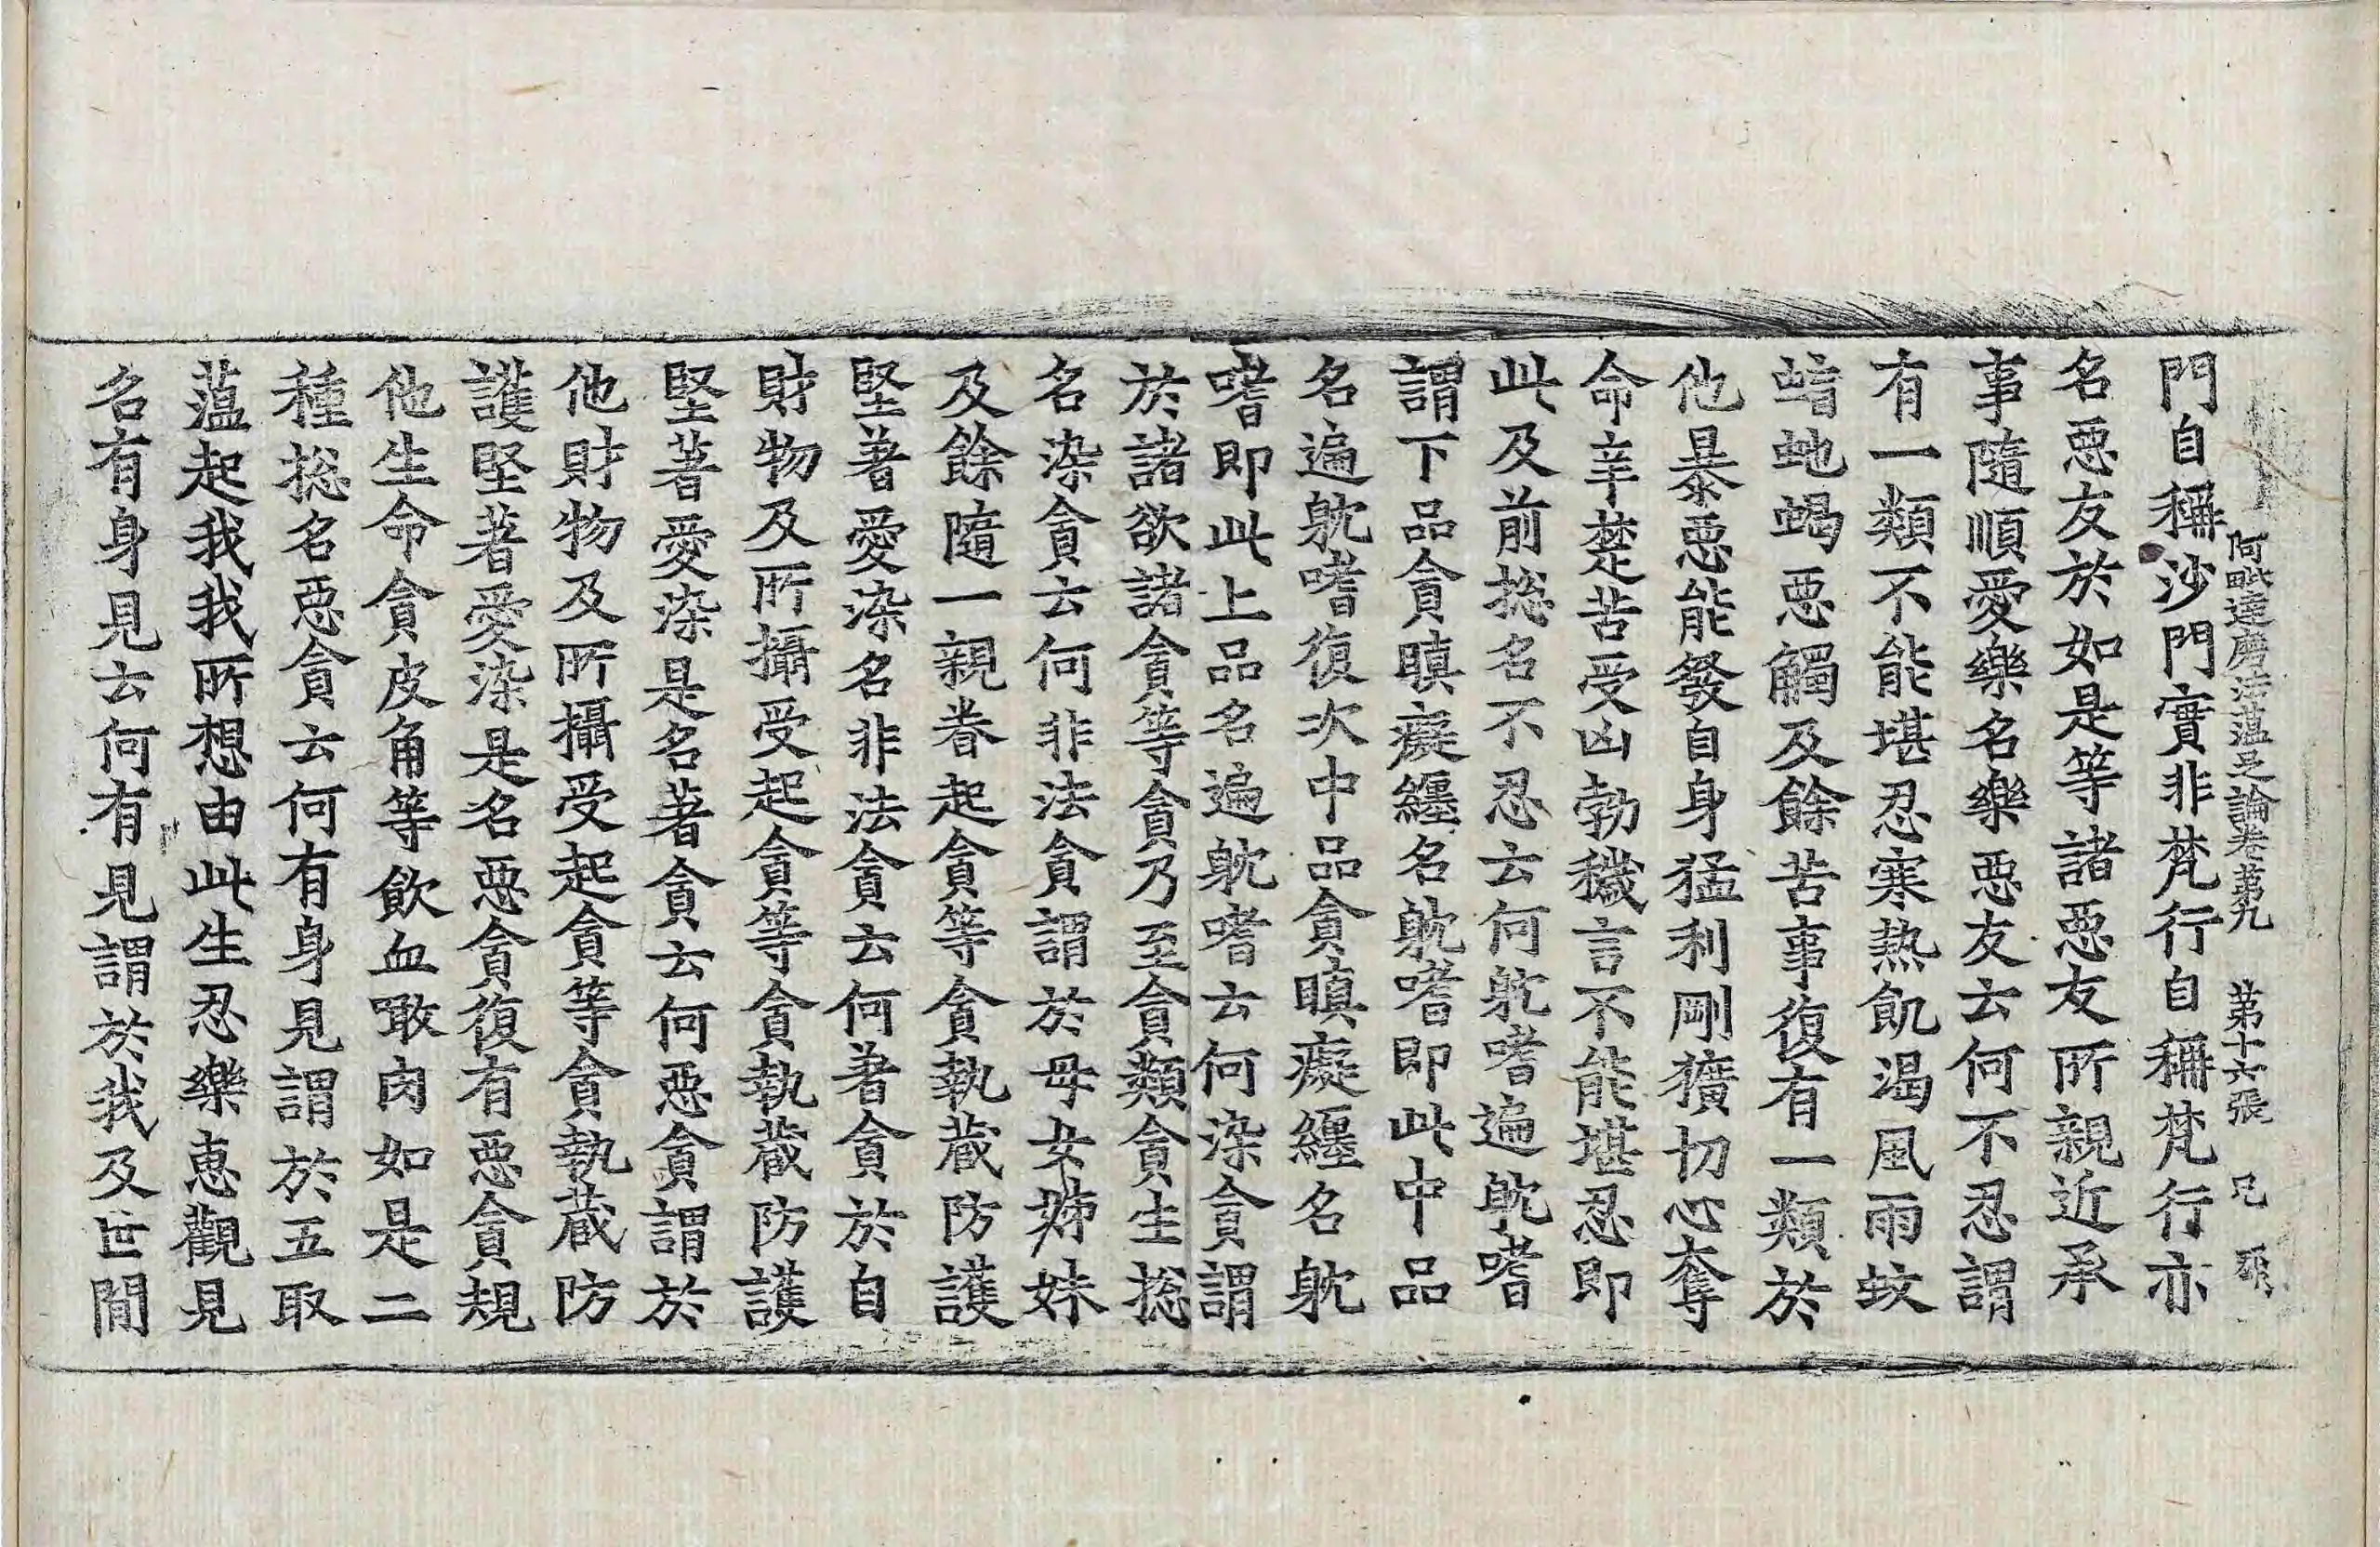 阿毗達磨法蕴足論卷第九 第十六張 兄
門自稱沙門實非梵行自稱梵行亦
名惡友於如是等諸惡友所親近承
事隨順愛樂名樂惡友云何不忍謂
有一類不能堪忍寒熱飢渴風雨蚊
蝱虵蝎惡觸及餘苦事復有一類於
他暴惡能發自身猛利剛獷切心奪
命辛楚苦受凶勃穢言不能堪忍即
此及前捴名不忍云何躭嗜遍躭嗜
謂下品貪瞋癡纏名躭嗜即此中品
名遍躭嗜復次中品貪瞋癡纏名躭
嗜即此上品名遍躭嗜云何染貪謂
於諸欲諸貪等貪乃至貪類貪生捴
名染貪云何非法貪謂於母女姊妹
及餘隨一親眷起貪等貪執蔵防護
堅著愛染名非法貪云何著貪於自
財物及所攝受起貪等貪執蔵防護
堅著愛染是名著貪云何惡貪謂於
他財物及所攝受起貪等貪執蔵防
護堅著愛染是名惡貪復有惡貪規
他生命貪皮角等飲血噉肉如是二
種捴名惡貪云何有身見謂於五取
蕰起我我所想由此生忍樂恵觀見
名有身見云何有見謂於我及世間